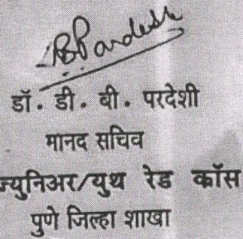 BPardeshi
डॉ. डी. बी. परदेशी
मानद सचिव
ज्युनिअर/युथ रेड कॉस
पुणे जिल्हा शाखा